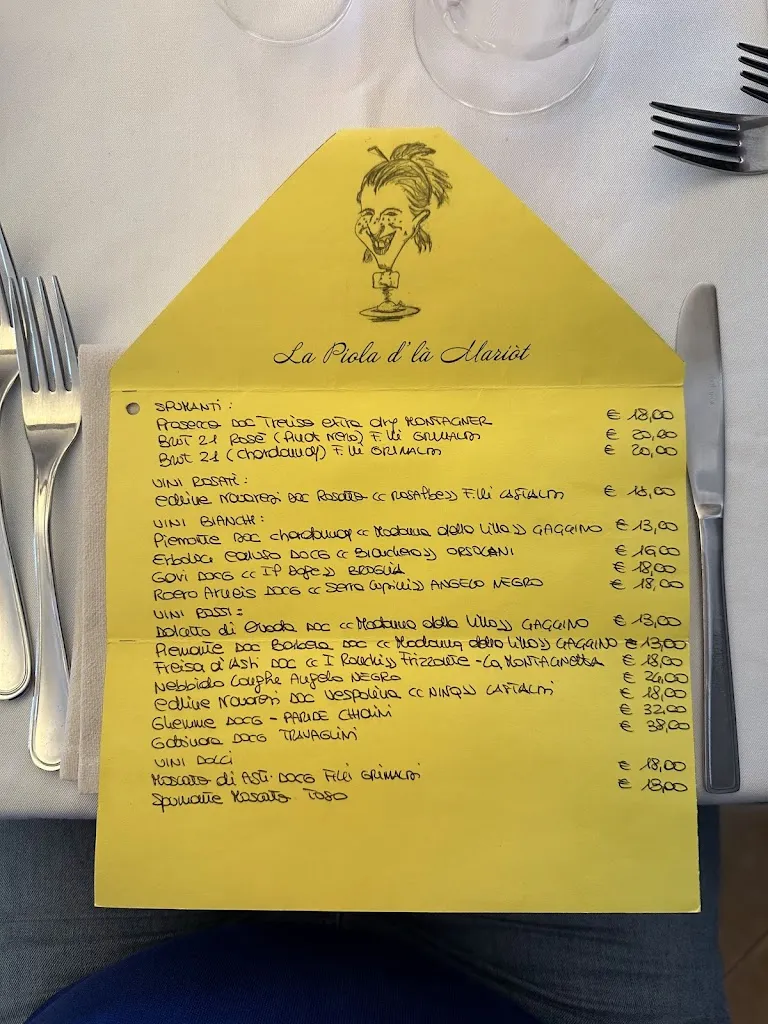 La Piola d'là Mariòt
SPUMANTI:
Prosecco DOC Treviso extra dry MONTAGNER € 18,00
Brut 21 Rosè (Pinot Nero) F.lli GRIMALDI € 20,00
Brut 21 (chardonnay) F.lli GRIMALDI € 20,00
VINI ROSATI:
colline Novaresi DOC Rosato << ROSAlba >> F.lli CASTALDI € 18,00
VINI BIANCHI:
Piemonte DOC chardonnay << Madama dello Villa >> GAGGINO € 13,00
Erbaluce caluso DOCG << >> ORSOLANI € 19,00
Gavi DOCG << Il Doge >> BROGLIA € 18,00
Roero Arneis DOCG << Serra Lupini >> ANGELO NEGRO € 18,00
VINI ROSSI:
Dolcetto di Ovada DOC << Madama dello Villa >> GAGGINO € 13,00
Piemonte DOC Barbera DOC << Madama dello Villa >> GAGGINO € 13,00
Freisa d'Asti DOC << I Ronchi >> Frizzante - La MONTAGNETTA € 18,00
Nebbiolo Langhe Angelo NEGRO € 24,00
colline Novaresi DOC Vespolina << NINA >> CASTALDI € 18,00
Ghemme DOCG - PARIDE CHIOVINI € 32,00
Gattinara DOCG TRAVAGLINI € 38,00
VINI DOLCI
Moscato di Asti DOCG F.lli GRIMALDI € 18,00
Spumante Moscato TOSO € 13,00